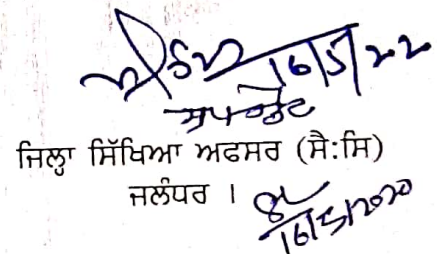 16/5/22
ਸੁਪਰਡੈਂਟ
ਜਿਲ੍ਹਾ ਸਿੱਖਿਆ ਅਫਸਰ (ਸੈ:ਸਿ)
ਜਲੰਧਰ ।
16/5/2022